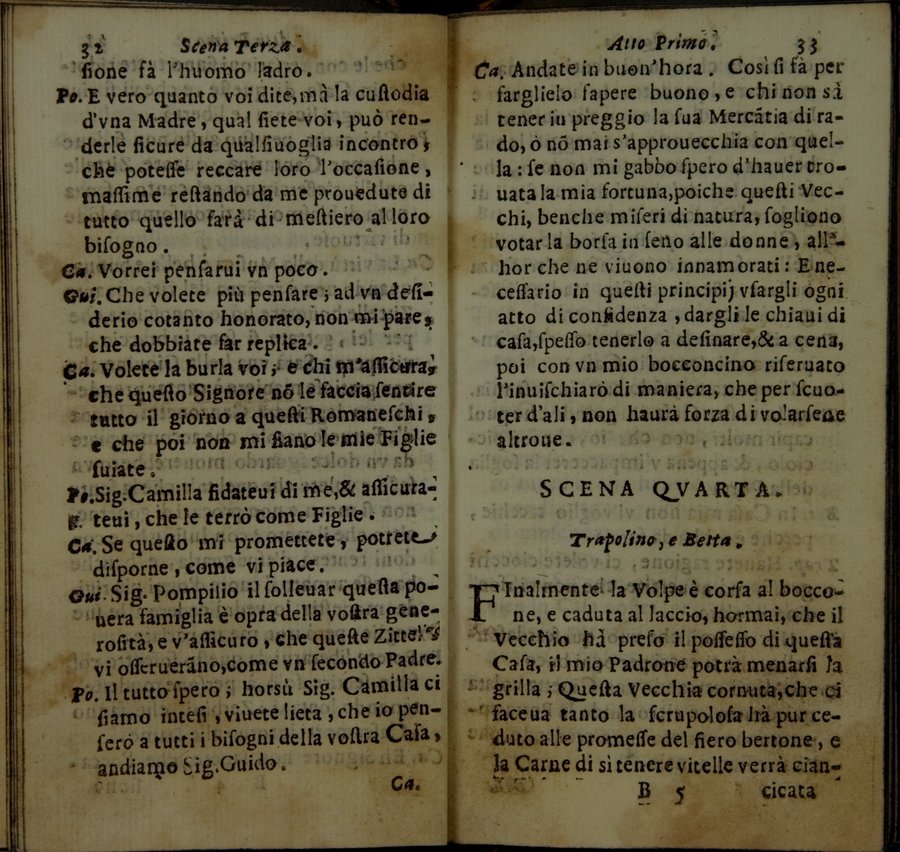 32 Scena Terza.
ſione fà l'huomo ladro.
Po. E vero quanto voi dite, mà la cuſtodia
d'vna Madre, qual ſiete voi, può ren-
derle ſicure da qualſiuoglia incontro;
che poteſſe reccare loro l'occaſione,
maſſime reſtando da me prouedute di
tutto quello farà di meſtiero al loro
biſogno.
Ca. Vorrei penſarui vn poco.
Gui. Che volete più penſare; ad vn deſi-
derio cotanto honorato, non mi pare,
che dobbiate far replica.
Ca. Volete la burla voi; e chi m'aſſicura,
che queſto Signore nõ le faccia ſentire
tutto il giorno a queſti Romaneſchi,
e che poi non mi ſiano le mie Figlie
ſuiate.
Po. Sig. Camilla fidateui di me, & aſſicura-
teui, che le terrò come Figlie.
Ca. Se queſto mi promettete, potrete
diſporne, come vi piace.
Gui. Sig. Pompilio il ſolleuar queſta po-
uera famiglia è opra della voſtra gene-
roſità, e v'aſſicuro, che queſte Zittelle
vi oſſeruerãno, come vn ſecondo Padre.
Po. Il tutto ſpero; horsù Sig. Camilla ci
ſiamo inteſi, viuete lieta, che io pen-
ſerò a tutti i biſogni della voſtra Caſa,
andiamo Sig. Guido.
Ca.
Atto Primo. 33
Ca. Andate in buon'hora. Così ſi fà per
farglielo ſapere buono, e chi non sà
tener in preggio la ſua Mercãtia di ra-
do, ò nõ mai s'approuecchia con quel-
la: ſe non mi gabbo ſpero d'hauer tro-
uata la mia fortuna, poiche queſti Vec-
chi, benche miſeri di natura, ſogliono
votar la borſa in ſeno alle donne, all'-
hor che ne viuono innamorati: E ne-
ceſſario in queſti principij vſargli ogni
atto di confidenza, dargli le chiaui di
caſa, ſpeſſo tenerlo a deſinare, & a cena,
poi con vn mio bocconcino riſeruato
l'inuiſchiarò di maniera, che per ſcuo-
ter d'ali, non haurà forza di volarſene
altroue.
SCENA QVARTA.
Trapolino, e Betta.
FInalmente la Volpe è corſa al bocco-
ne, e caduta al laccio, hormai, che il
Vecchio hà preſo il poſſeſſo di queſta
Caſa, il mio Padrone potrà menarſi la
grilla; Queſta Vecchia cornuta, che ci
faceua tanto la ſcrupoloſa hà pur ce-
duto alle promeſſe del fiero bertone, e
la Carne di sì tenere vitelle verrà cian-
B 5 cicata